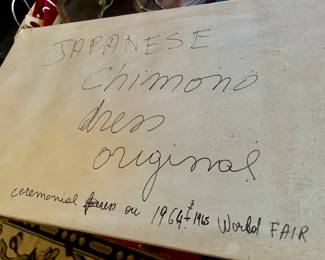 JAPANESE
chimono
dress
original
ceremonial dress on 1964-1965 World FAIR